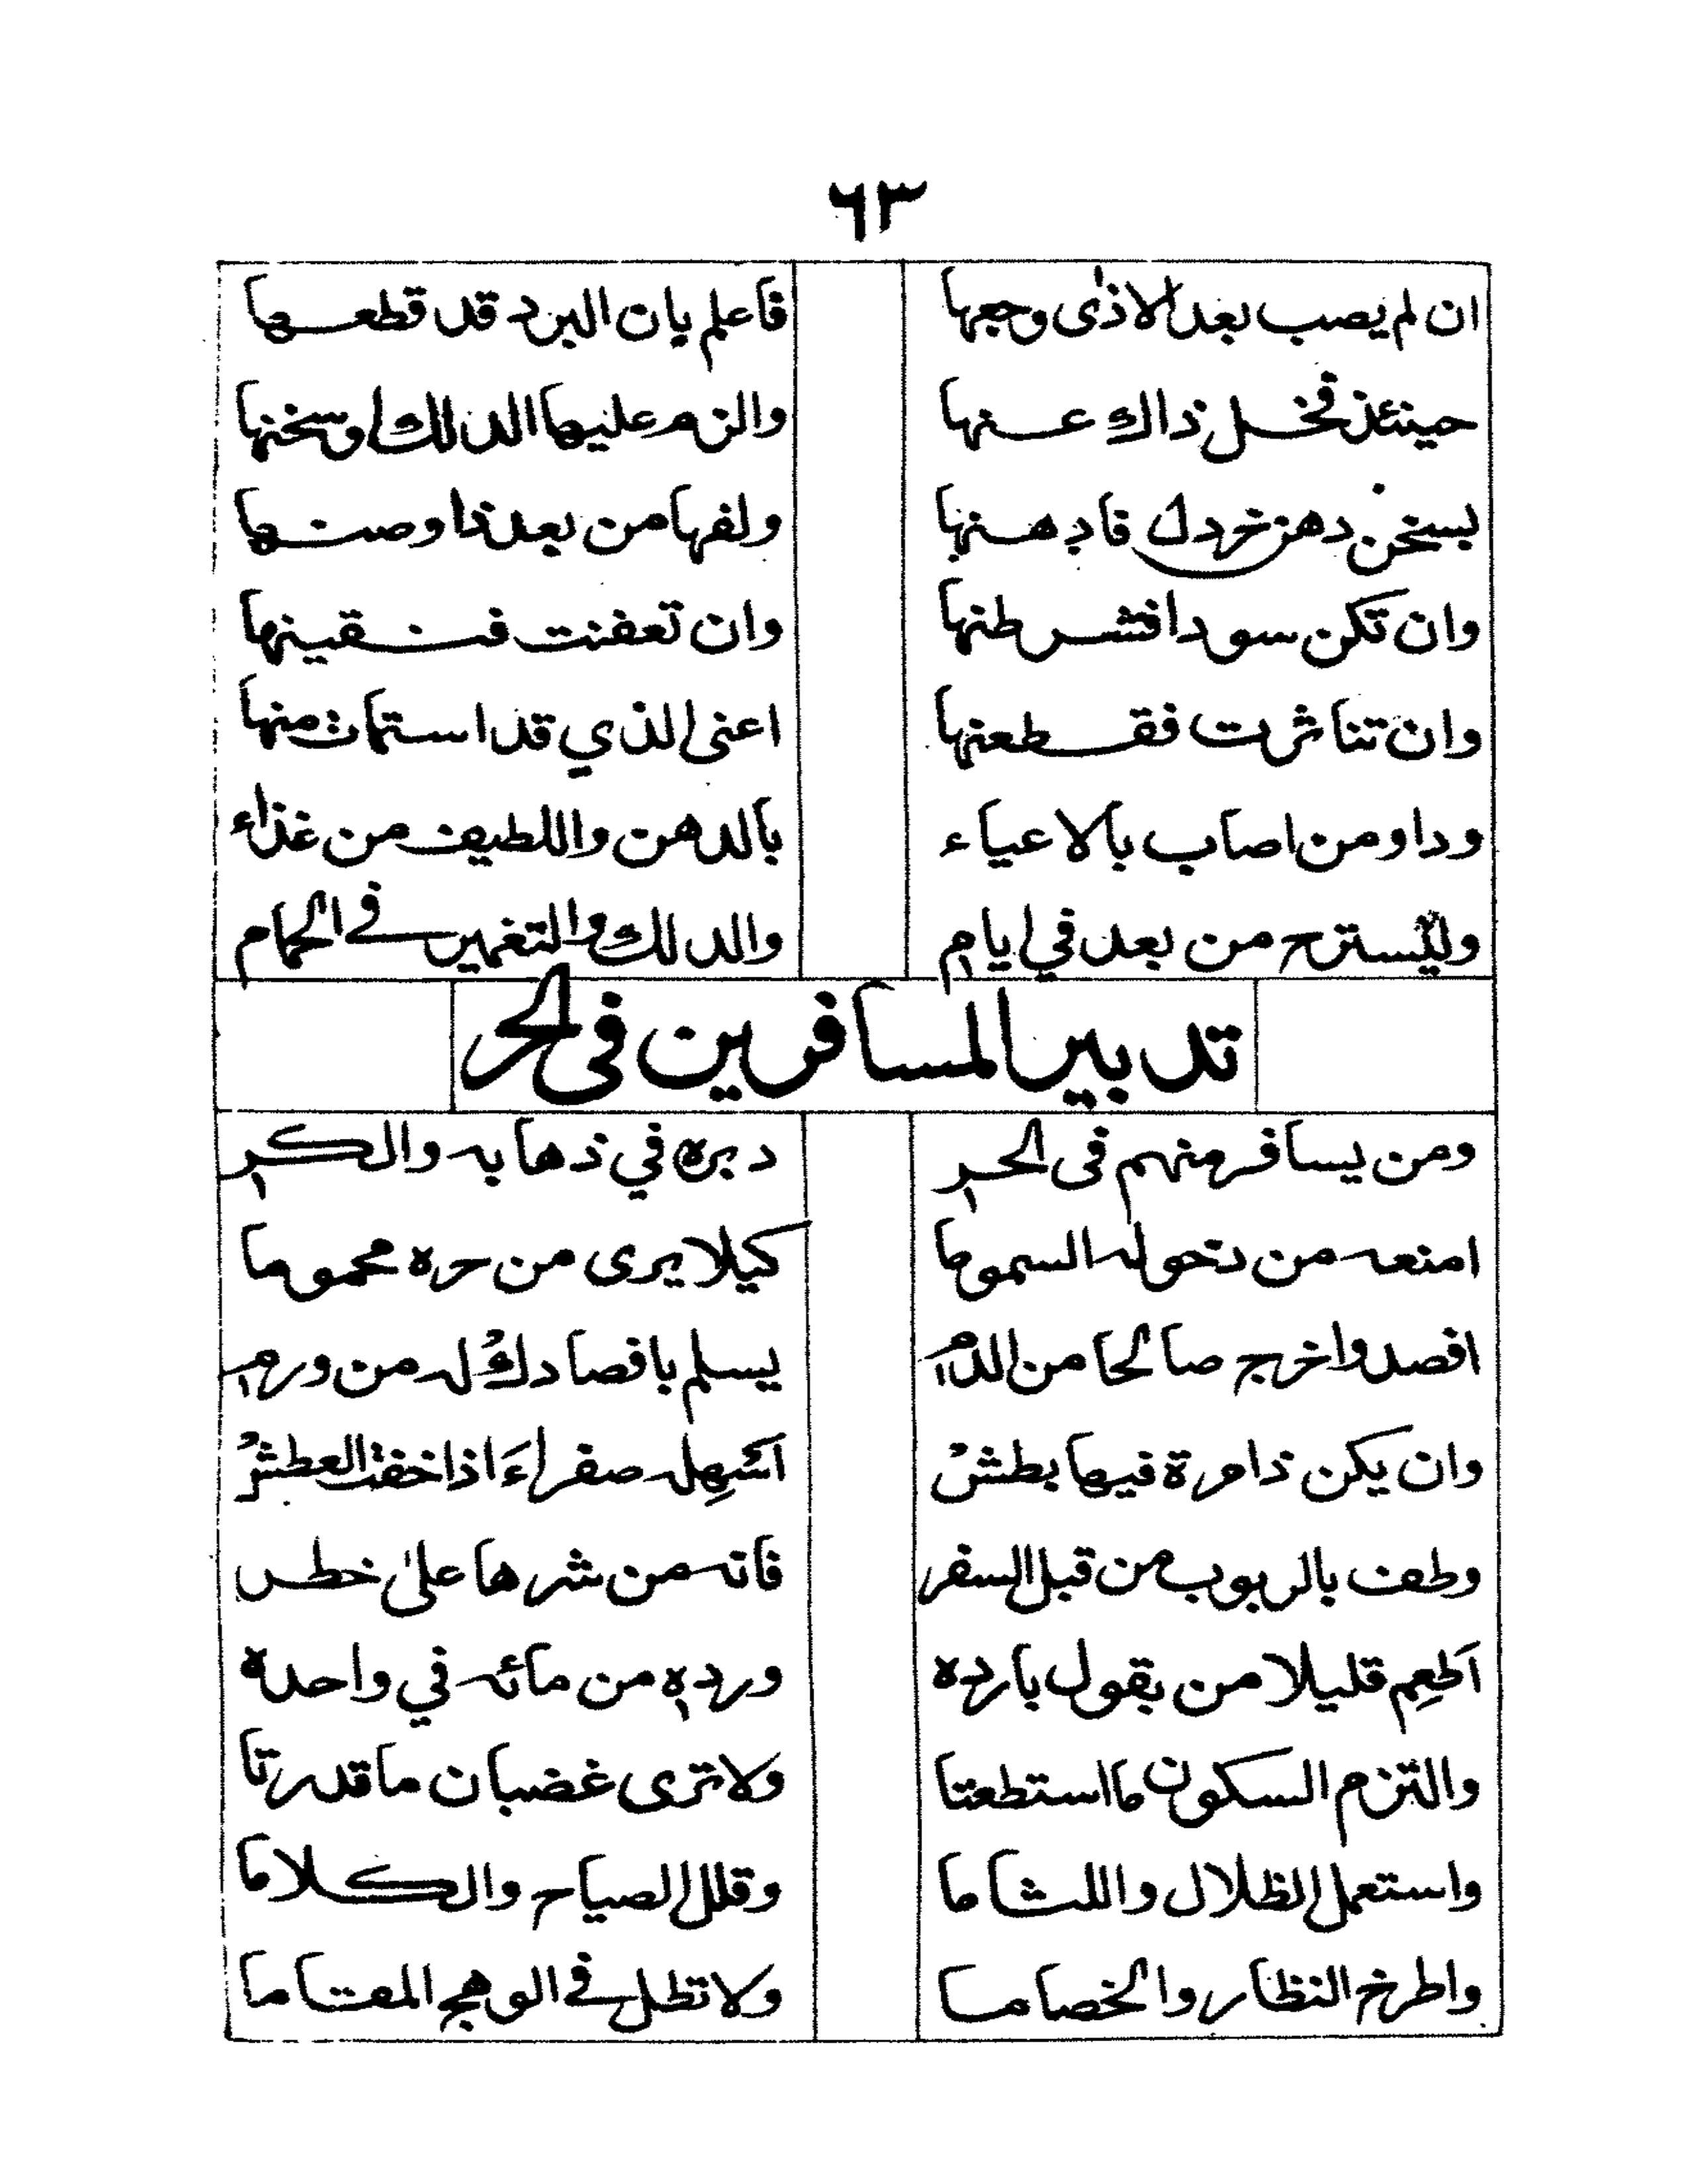 ٦٣
ان لم يصب بعد الاذى وجعها فاعلم بان البرد قد قطعها
حينئذ فخل ذاك عنها والزم عليها الدلك او سخنها
بسخن دهن خردل فادهنها ولفها من بعد ذا وصنها
وان تكن سودا فشرطنها وان تعفنت فنقينها
وان تناثرت فقطعنها اعنى الذي قد استمات منها
وداو من اصاب بالاعياء بالدهن واللطيف من غذاء
وليسترح من بعد في ايام والدلك والتغمير في الحمام
تدبير المسافرين فى الحر
ومن يسافر منهم فى الحر دبره في ذهابه والكر
امنعه من دخوله السموما كيلا يرى من حره محموما
افصد واخرج صالحا من الدم يسلم بافصادك له من ورم
وان يكن ذا مرة فيها بطش اسهل صفراء اذا خفت العطش
وطف بالربوب من قبل السفر فانه من شرها على خطر
اطعم قليلا من بقول بارده ورده من مائه في واحده
والتزم السكون ما استطعتا ولا ترى غضبان ما قدرتا
واستعمل الظلال واللثاما وقلل الصياح والكلاما
واطرخ النظار والخصاما ولا تطل في الوهج المقتاما